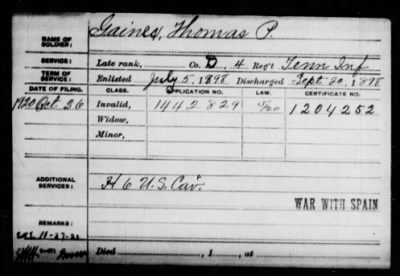 NAME OF SOLDIER: Gaines, Thomas P.
SERVICE: Late rank, Co. D, 4 Reg't Tenn Inf
TERM OF SERVICE: Enlisted July 5, 1898 Discharged Sept 20, 1898
DATE OF FILING. CLASS. APPLICATION NO. LAW. CERTIFICATE NO.
1920 Oct. 26 Invalid, 1442829 1204252
Widow,
Minor,
ADDITIONAL SERVICES: H 6 U.S. Cav.
WAR WITH SPAIN
REMARKS:
11-27-31
Died , 1 , at